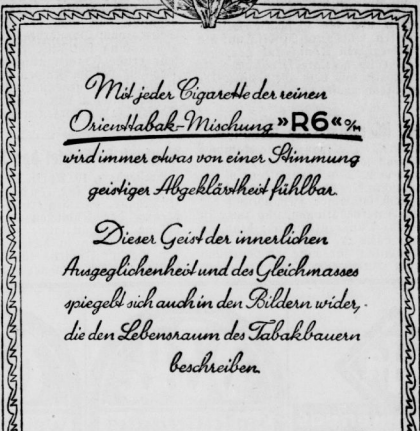 Mit jeder Cigarette der reinen
Orienttabak-Mischung »R6« o/M
wird immer etwas von einer Stimmung
geistiger Abgeklärtheit fühlbar.
Dieser Geist der innerlichen
Ausgeglichenheit und des Gleichmasses
spiegelt sich auch in den Bildern wider,-
die den Lebensraum des Tabakbauern
beschreiben.